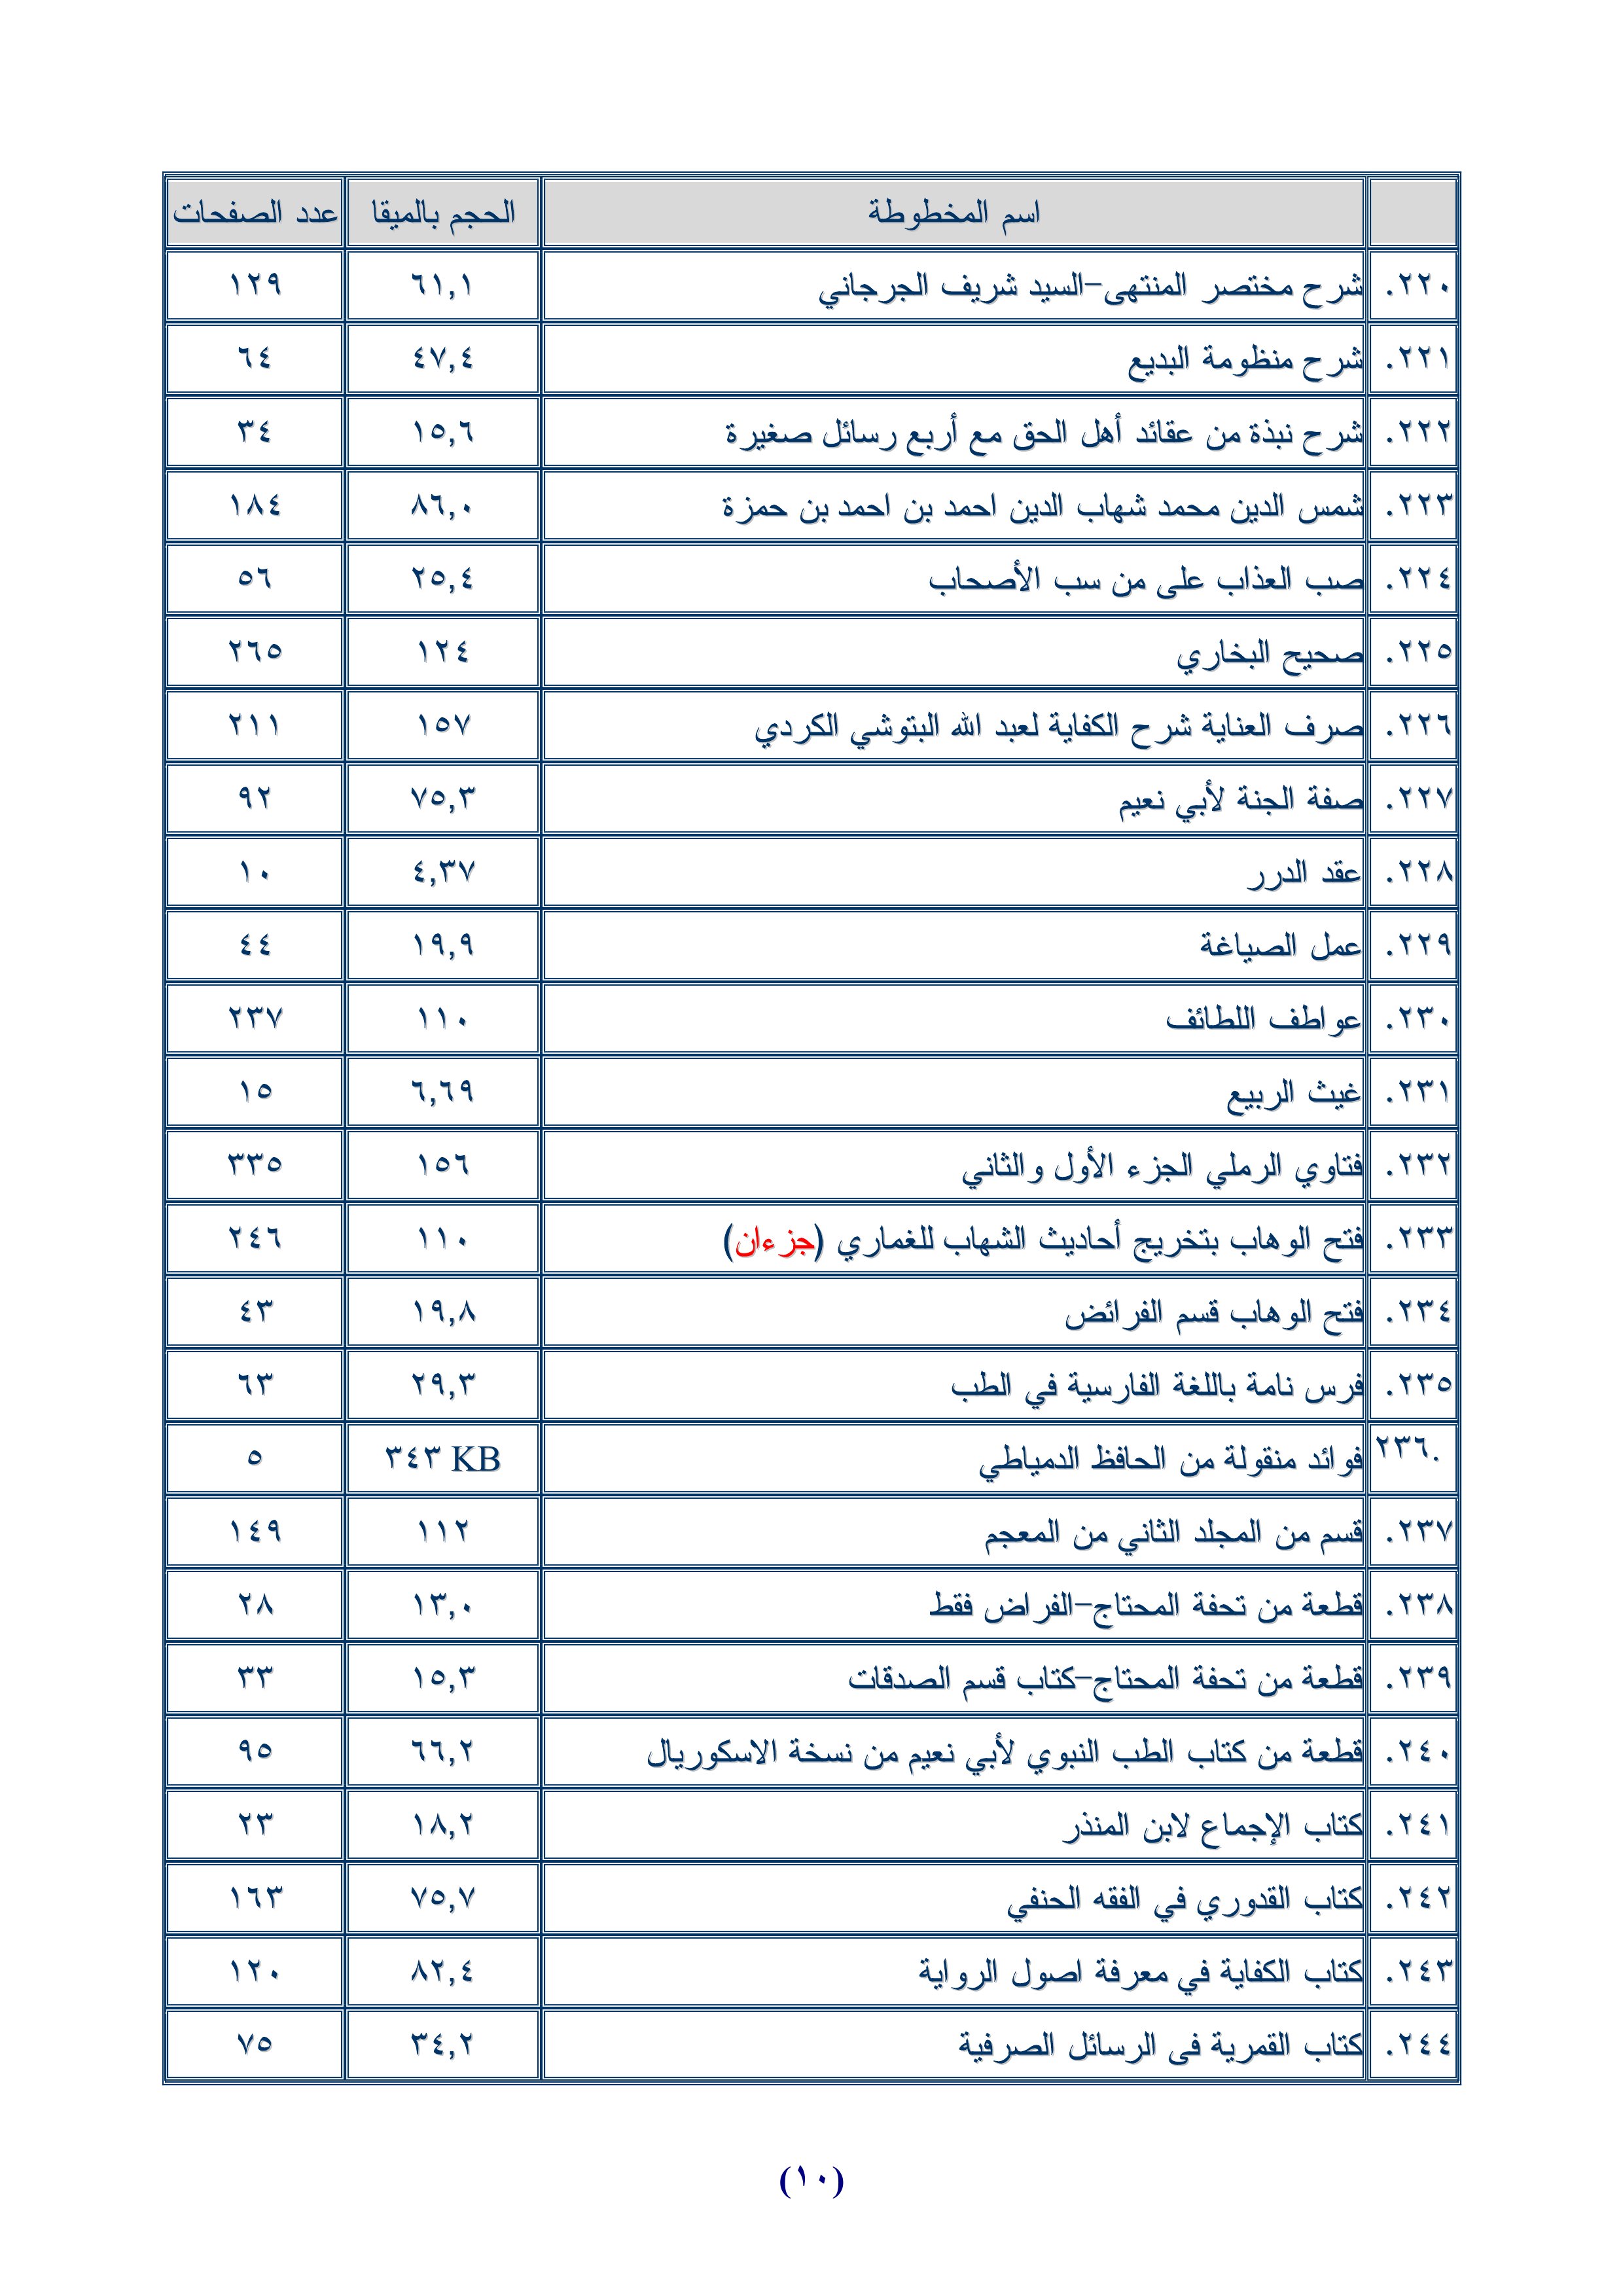 اسم المخطوطة الحجم بالميقا عدد الصفحات
٢٢٠. شرح مختصر المنتهى-السيد شريف الجرجاني ٦١,١ ١٢٩
٢٢١. شرح منظومة البديع ٤٧,٤ ٦٤
٢٢٢. شرح نبذة من عقائد أهل الحق مع أربع رسائل صغيرة ١٥,٦ ٣٤
٢٢٣. شمس الدين محمد شهاب الدين احمد بن احمد بن حمزة ٨٦,٠ ١٨٤
٢٢٤. صب العذاب على من سب الأصحاب ٢٥,٤ ٥٦
٢٢٥. صحيح البخاري ١٢٤ ٢٦٥
٢٢٦. صرف العناية شرح الكفاية لعبد الله البتوشي الكردي ١٥٧ ٢١١
٢٢٧. صفة الجنة لأبي نعيم ٧٥,٣ ٩٢
٢٢٨. عقد الدرر ٤,٣٧ ١٠
٢٢٩. عمل الصياغة ١٩,٩ ٤٤
٢٣٠. عواطف اللطائف ١١٠ ٢٣٧
٢٣١. غيث الربيع ٦,٦٩ ١٥
٢٣٢. فتاوي الرملي الجزء الأول والثاني ١٥٦ ٣٣٥
٢٣٣. فتح الوهاب بتخريج أحاديث الشهاب للغماري (جزءان) ١١٠ ٢٤٦
٢٣٤. فتح الوهاب قسم الفرائض ١٩,٨ ٤٣
٢٣٥. فرس نامة باللغة الفارسية في الطب ٢٩,٣ ٦٣
٢٣٦. فوائد منقولة من الحافظ الدمياطي ٣٤٣ KB ٥
٢٣٧. قسم من المجلد الثاني من المعجم ١١٢ ١٤٩
٢٣٨. قطعة من تحفة المحتاج-الفراض فقط ١٣,٠ ٢٨
٢٣٩. قطعة من تحفة المحتاج-كتاب قسم الصدقات ١٥,٣ ٣٣
٢٤٠. قطعة من كتاب الطب النبوي لأبي نعيم من نسخة الاسكوريال ٦٦,٢ ٩٥
٢٤١. كتاب الإجماع لابن المنذر ١٨,٢ ٢٣
٢٤٢. كتاب القدوري في الفقه الحنفي ٧٥,٧ ١٦٣
٢٤٣. كتاب الكفاية في معرفة اصول الرواية ٨٢,٤ ١٢٠
٢٤٤. كتاب القمرية فى الرسائل الصرفية ٣٤,٢ ٧٥
(١٠)